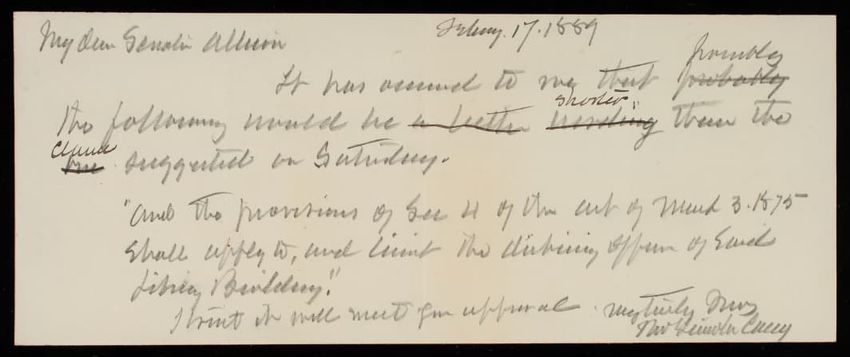 Febuy. 17. 1889
My dear Senator Allison
It has occured to me that possibly probably
the following would be a better wording shorter than the
one clause suggested on Saturday.
"And the provisions of Sec 4 of the act of March 3. 1875
shall apply to, and limit the disbursing officer of said
Library Building."
I trust it will meet your approval. Very truly yours
Thos Lincoln Casey